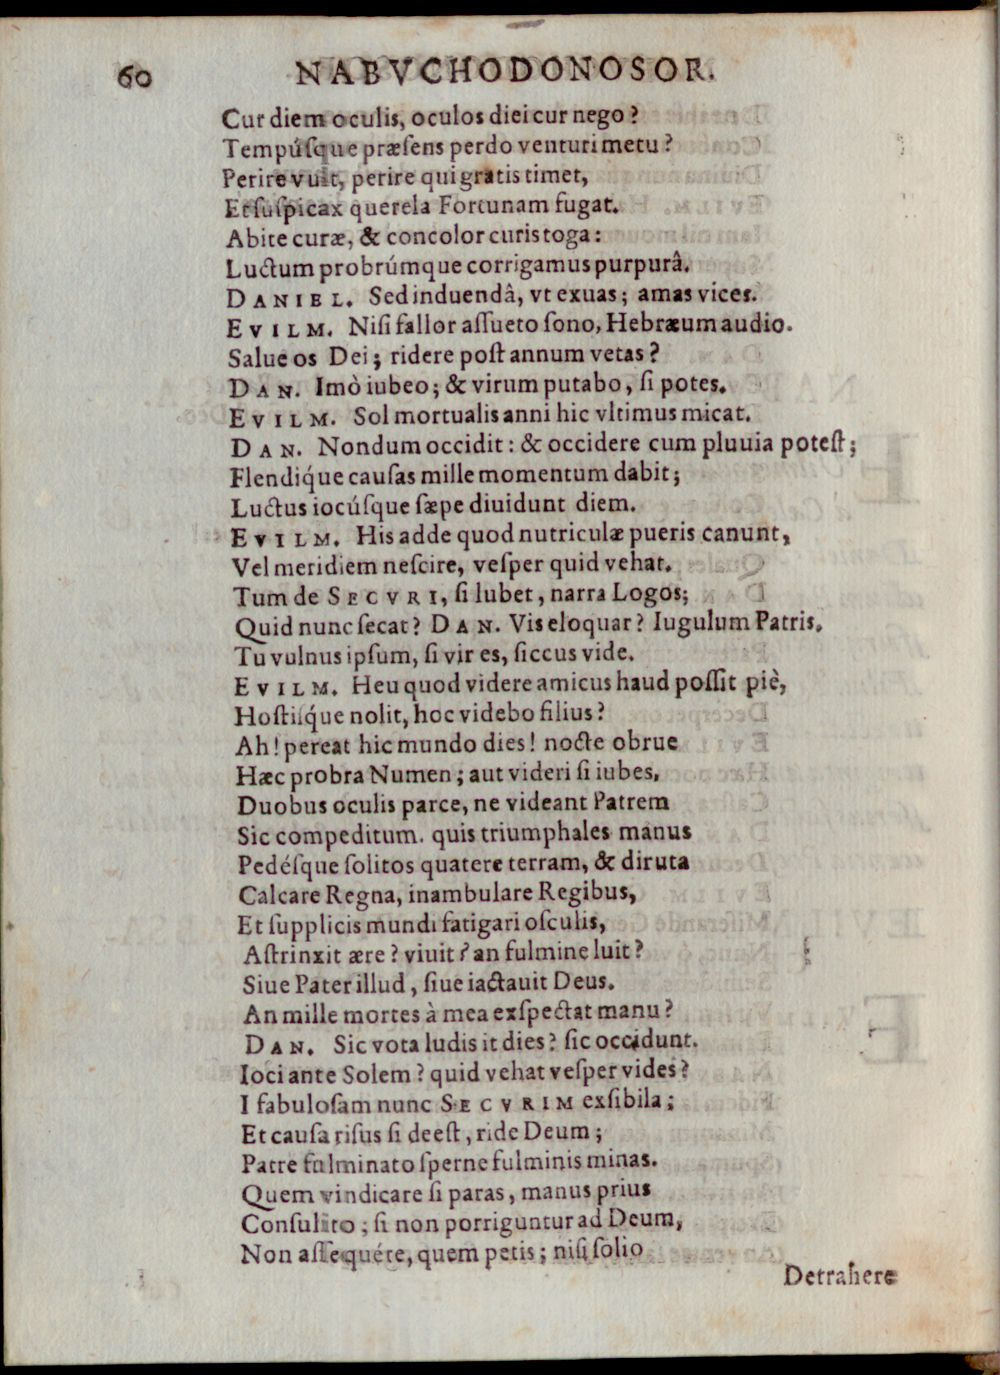 60 NABVCHODONOSOR.
Cur diem oculis, oculos diei cur nego?
Tempúſque præſens perdo venturi metu?
Perire vult, perire qui gratis timet,
Et ſuſpicax querela Fortunam fugat.
Abite curæ, & concolor curis toga:
Luctum probrúmque corrigamus purpurâ.
DANIEL. Sed induendâ, vt exuas; amas vices.
EVILM. Niſi fallor aſſueto ſono, Hebræum audio.
Salue os Dei; ridere poſt annum vetas?
DAN. Imò iubeo; & virum putabo, ſi potes.
EVILM. Sol mortualis anni hic vltimus micat.
DAN. Nondum occidit: & occidere cum pluuia poteſt;
Flendiq́ue cauſas mille momentum dabit;
Luctus iocúſque ſæpe diuidunt diem.
EVILM. His adde quod nutriculæ pueris canunt,
Vel meridiem neſcire, veſper quid vehat.
Tum de SECVRI, ſi lubet, narra Logos;
Quid nunc ſecat? DAN. Vis eloquar? Iugulum Patris.
Tu vulnus ipſum, ſi vir es, ſiccus vide.
EVILM. Heu quod videre amicus haud poſſit piè,
Hoſtiiq́ue nolit, hoc videbo filius?
Ah! pereat hic mundo dies! nocte obrue
Hæc probra Numen; aut videri ſi iubes,
Duobus oculis parce, ne videant Patrem
Sic compeditum. quis triumphales manus
Pedéſque ſolitos quatere terram, & diruta
Calcare Regna, inambulare Regibus,
Et ſupplicis mundi fatigari oſculis,
Aſtrinxit ære? viuit? an fulmine luit?
Siue Pater illud, ſiue iactauit Deus.
An mille mortes à mea exſpectat manu?
DAN. Sic vota ludis it dies? ſic occidunt.
Ioci ante Solem? quid vehat veſper vides?
I fabuloſam nunc SECVRIM exſibila;
Et cauſa riſus ſi deeſt, ride Deum;
Patre fulminato ſperne fulminis minas.
Quem vindicare ſi paras, manus prius
Conſulito; ſi non porriguntur ad Deum,
Non aſſequére, quem petis; niſi ſolio
Detrahere